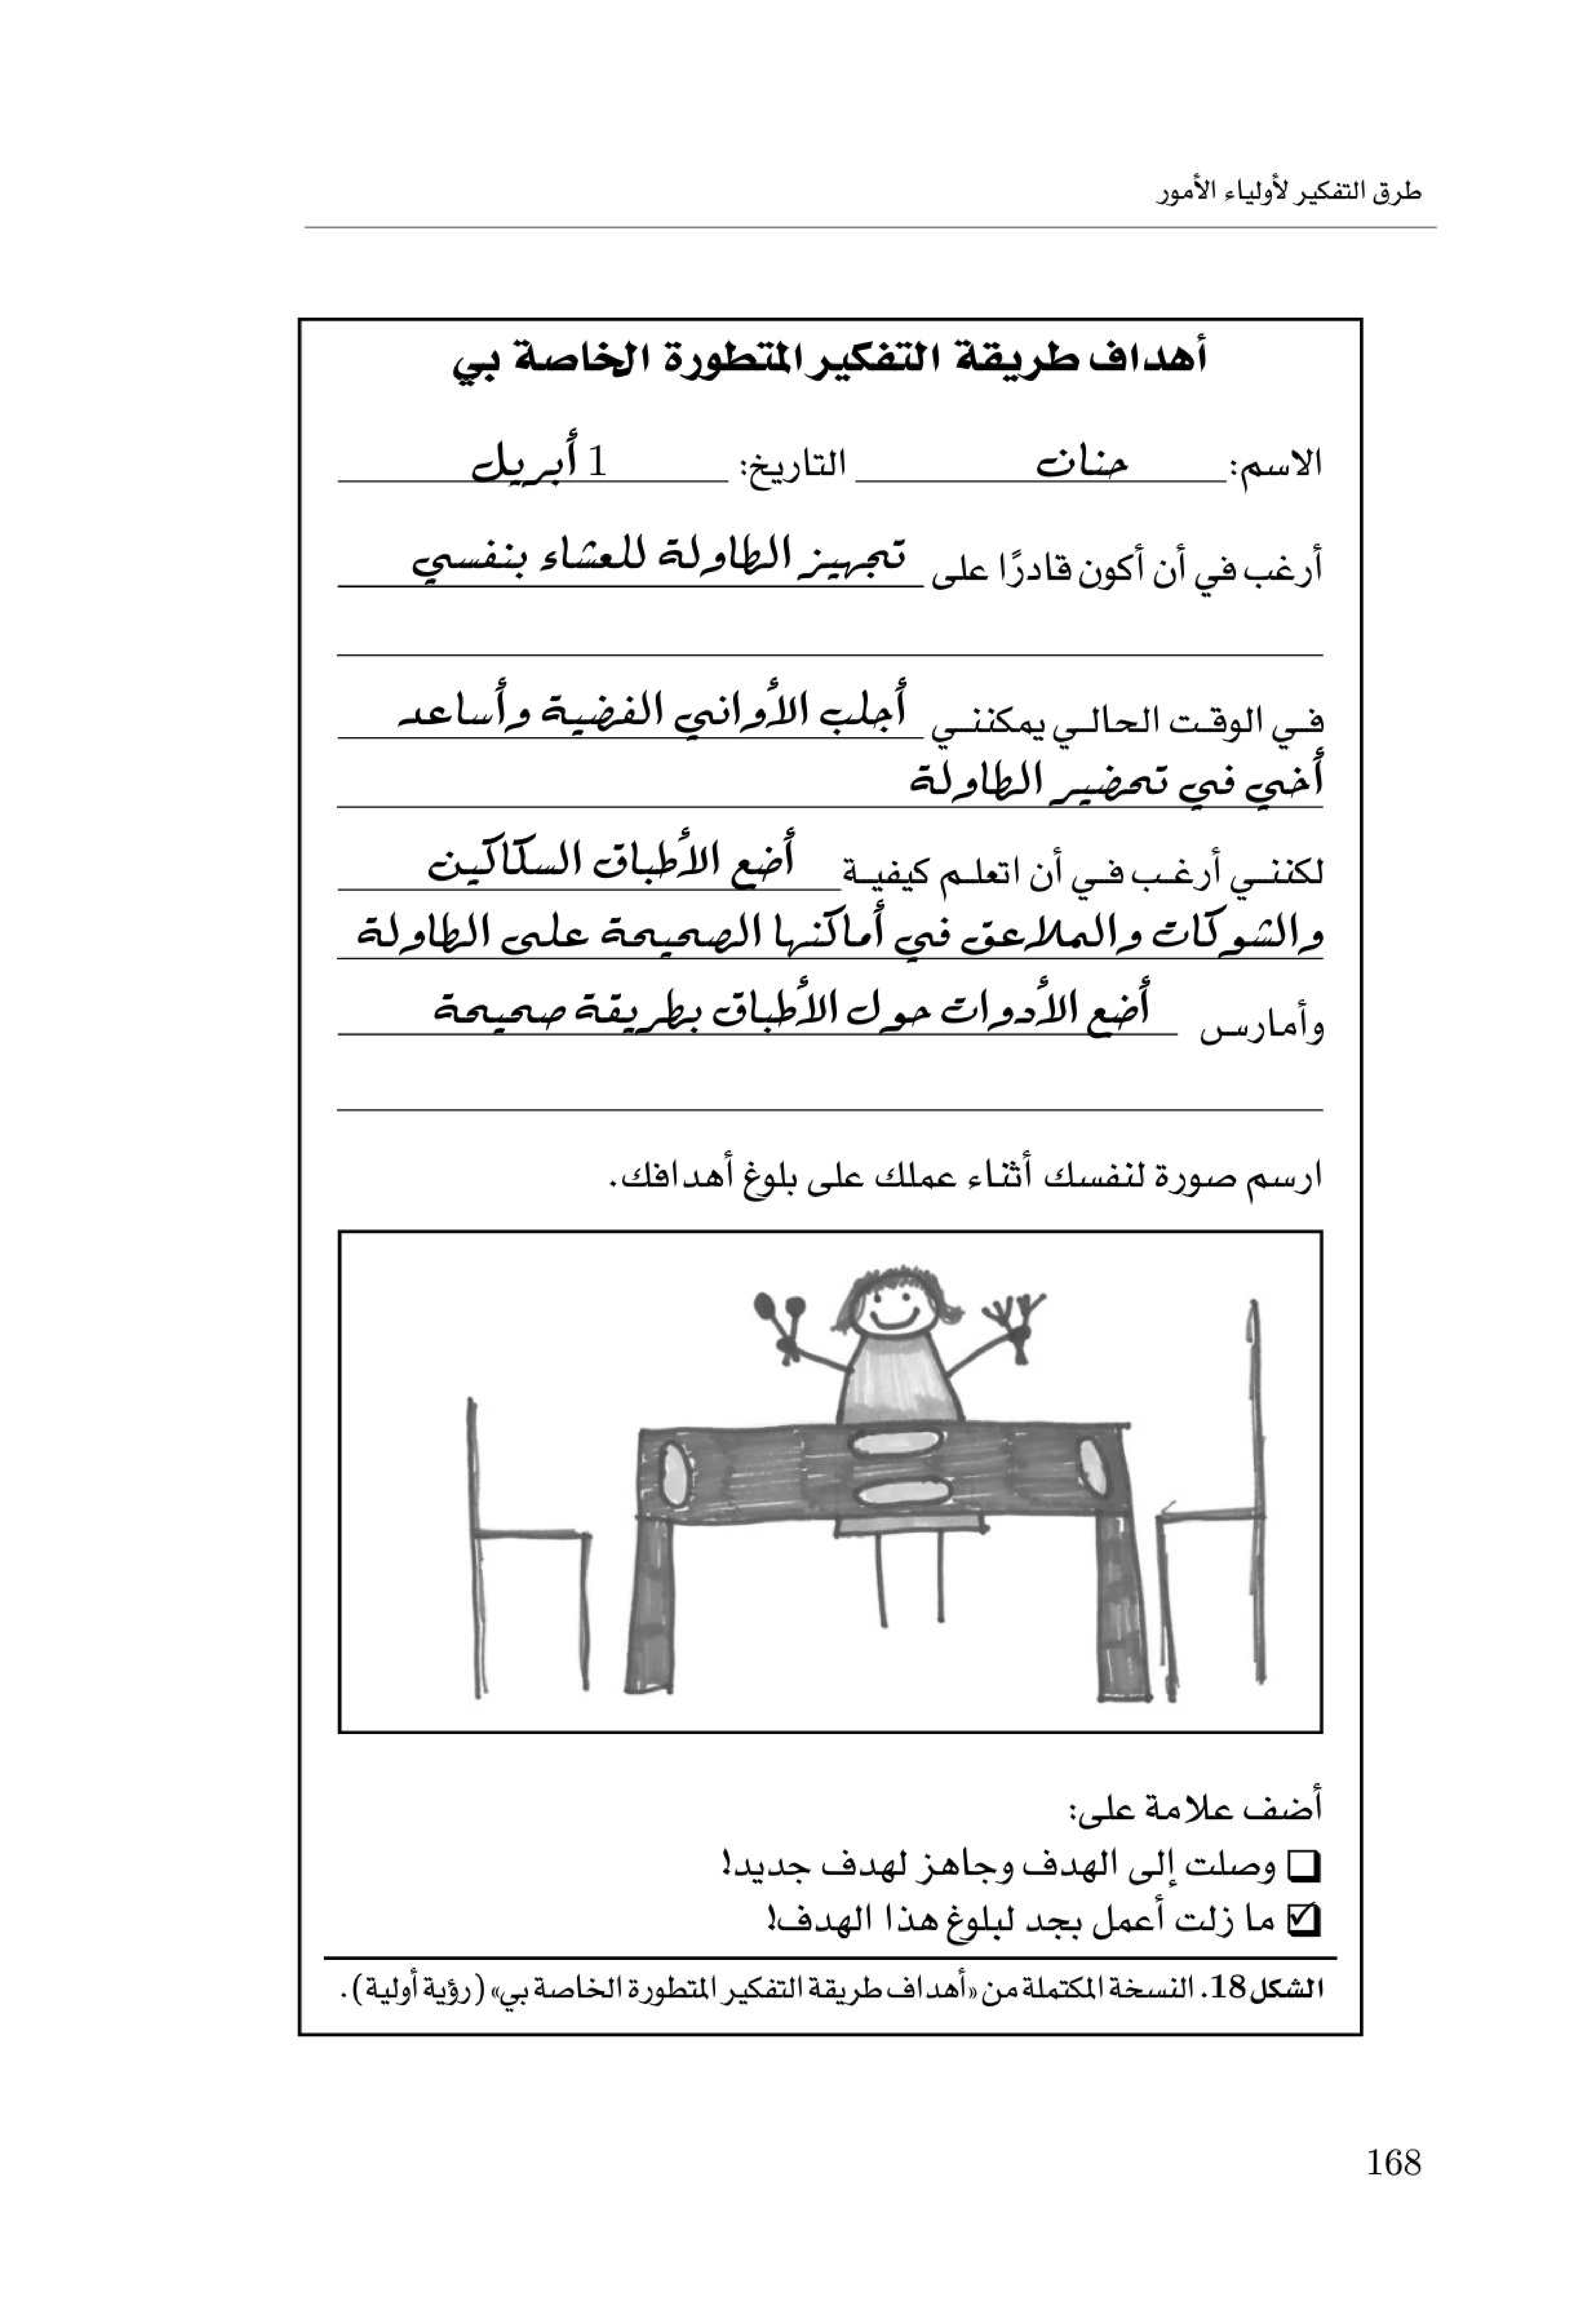 طرق التفكير لأولياء الأمور
أهداف طريقة التفكير المتطورة الخاصة بي
الاسم: حنان التاريخ: 1 أبريل
أرغب في أن أكون قادرًا على تجهيز الطاولة للعشاء بنفسي
في الوقت الحالي يمكنني أجلب الأواني الفضية وأساعد
أخي في تحضير الطاولة
لكنني أرغب في أن اتعلم كيفية أضع الأطباق السكاكين
والشوكات والملاعق في أماكنها الصحيحة على الطاولة
وأمارس أضع الأدوات حول الأطباق بطريقة صحيحة
ارسم صورة لنفسك أثناء عملك على بلوغ أهدافك.
أضف علامة على:
❑ وصلت إلى الهدف وجاهز لهدف جديد!
☑ ما زلت أعمل بجد لبلوغ هذا الهدف!
الشكل 18. النسخة المكتملة من «أهداف طريقة التفكير المتطورة الخاصة بي» (رؤية أولية).
168